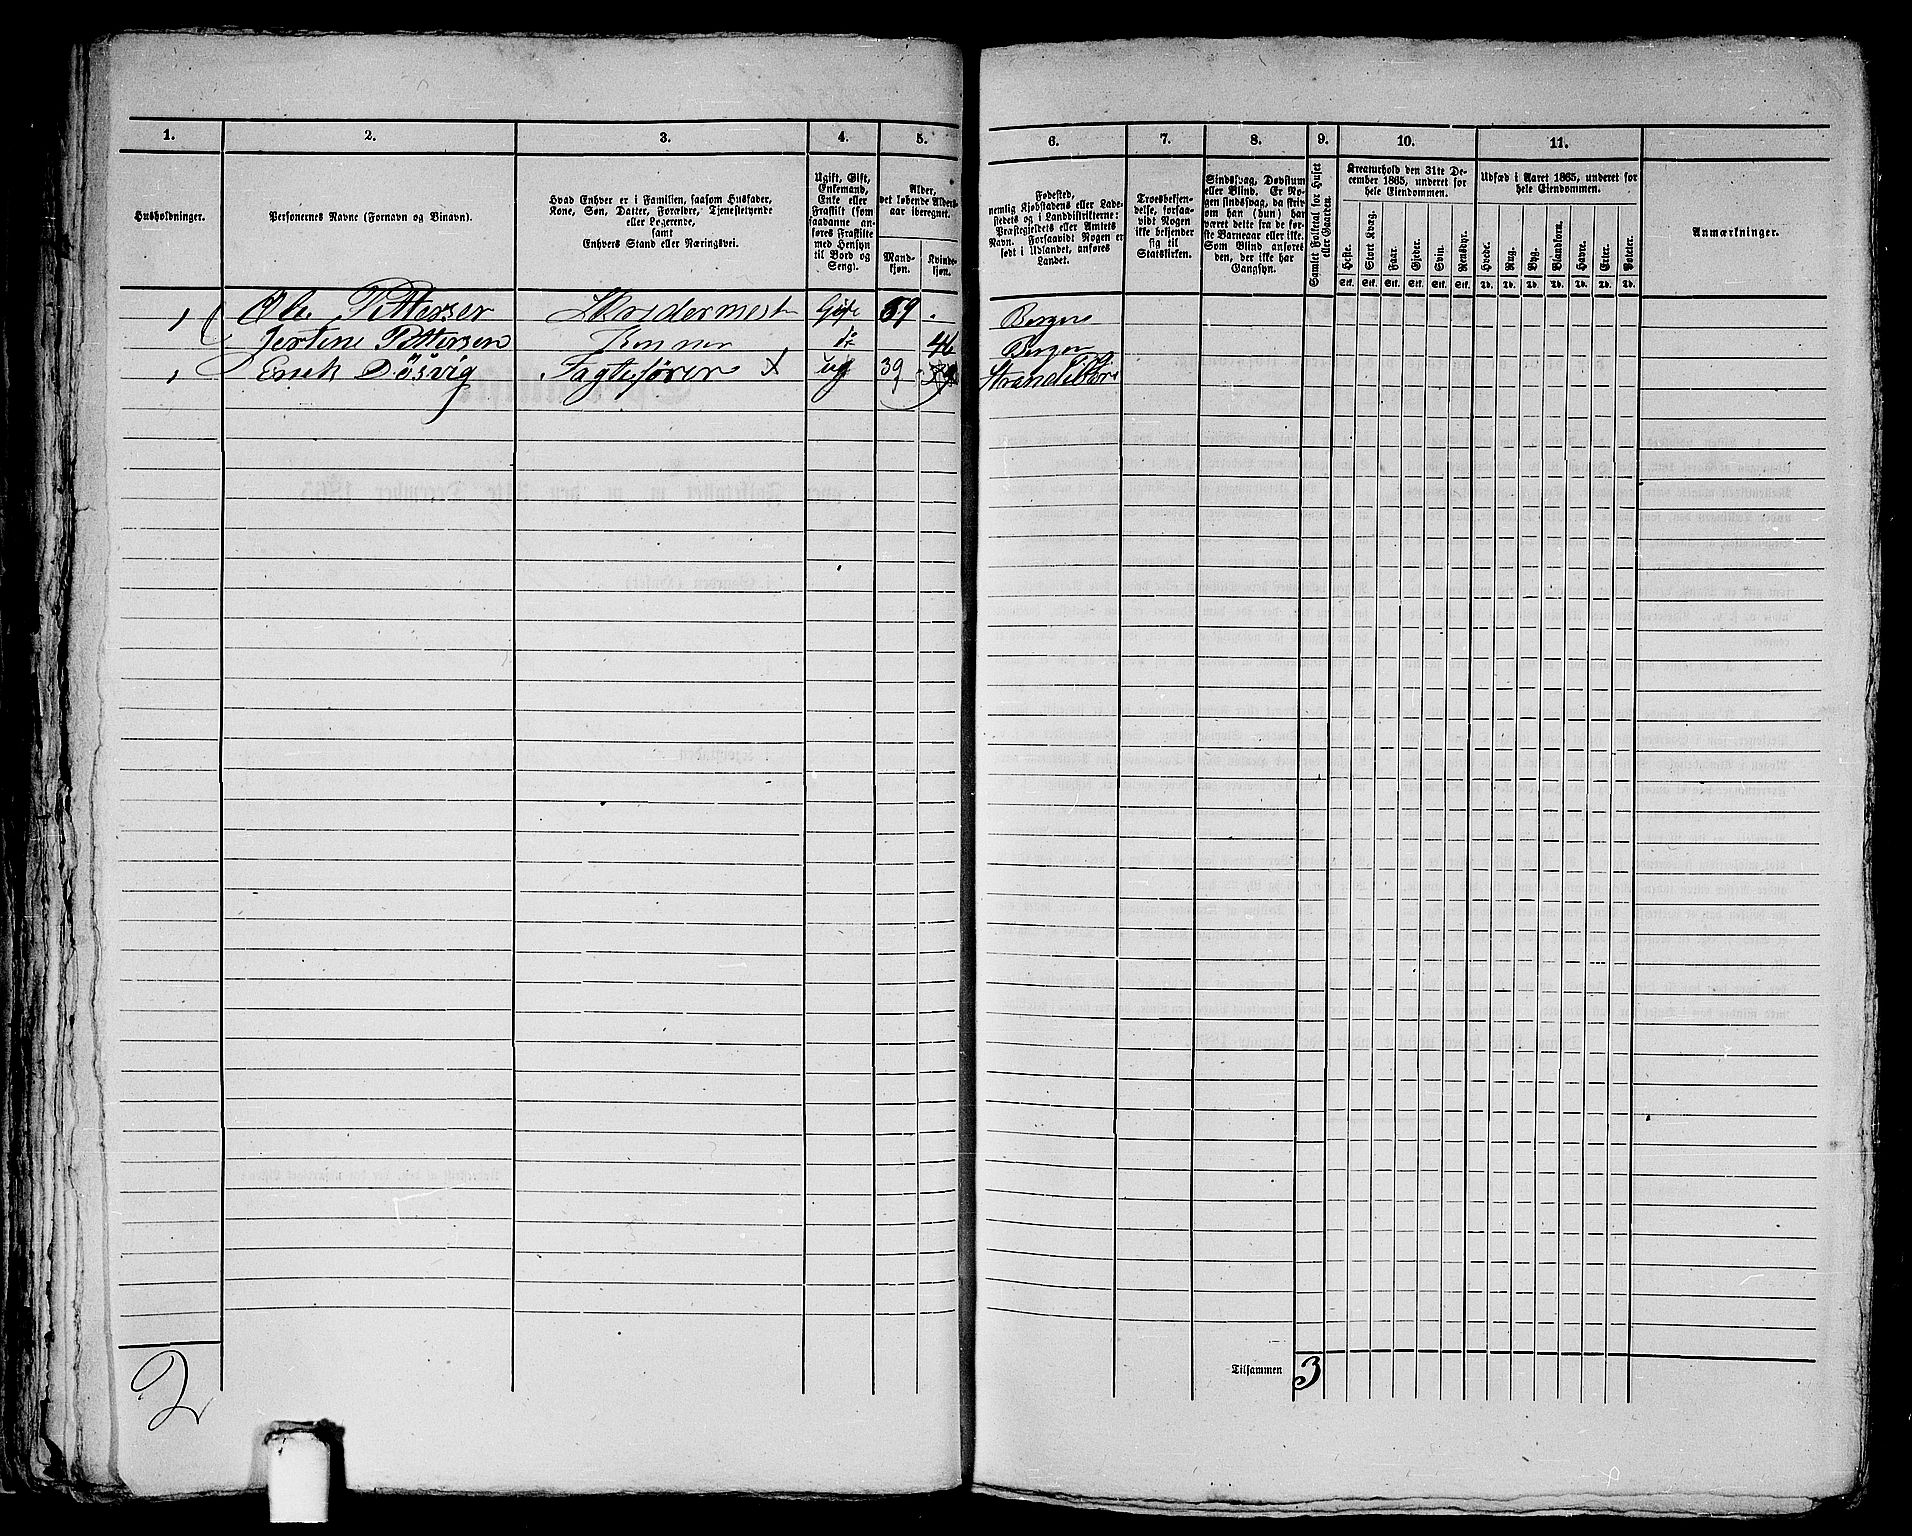 1. 2. 3. 4. 5. 6. 7. 8. 9. 10. 11.
Husholdninger.
Personernes Navne (Fornavn og Binavn).
Hvad Enhver er i Familien, saasom Husfader,
Kone, Søn, Datter, Forældre, Tjenestetyende
eller Logerende,
samt
Enhvers Stand eller Næringsvei.
Ugift, Gift,
Enkemand,
Enke eller
Fraskilt (som
saadanne an-
føres Fraskilte
med Hensyn
til Bord og
Seng).
Alder,
det løbende Alders-
aar iberegnet.
Mand-
kjøn.
Kvinde-
kjøn.
Fødested,
nemlig Kjøbstadens eller Lade-
stedets og i Landdistrikterne:
Præstegjeldets eller Amtets
Navn. Forsaavidt Nogen er
født i Udlandet, anføres
Landet.
Troesbekjen-
delse, forsaa-
vidt Nogen
ikke bekjender
sig til
Statskirken.
Sindssvag, Døvstum
eller Blind. Er No-
gen sindssvag, da skriv
om han (hun) har
været dette fra de før-
ste Barneaar eller ikke.
Som Blind anføres
den, der ikke har
Gangsyn.
Samlet Folketal for Huset
eller Gaarden.
Kreaturhold den 31te De-
cember 1865, underet for
hele Eiendommen.
Heste. Stort Kvæg. Faar. Gjeder. Svin. Rensdyr.
Stk. Stk. Stk. Stk. Stk. Stk.
Udsæd i Aaret 1865, underet for
hele Eiendommen.
Hvede. Rug. Byg. Blandkorn. Havre. Erter. Poteter.
Td. Td. Td. Td. Td. Td. Td.
Anmærkninger.
1 Ole Pettersen Skredermest Gift 59 Bergen
Jertine Pettersen Konner do 46 Bergen
1 Erick Døsvig Fagtefører X ug 39
Tilsammen 3
2